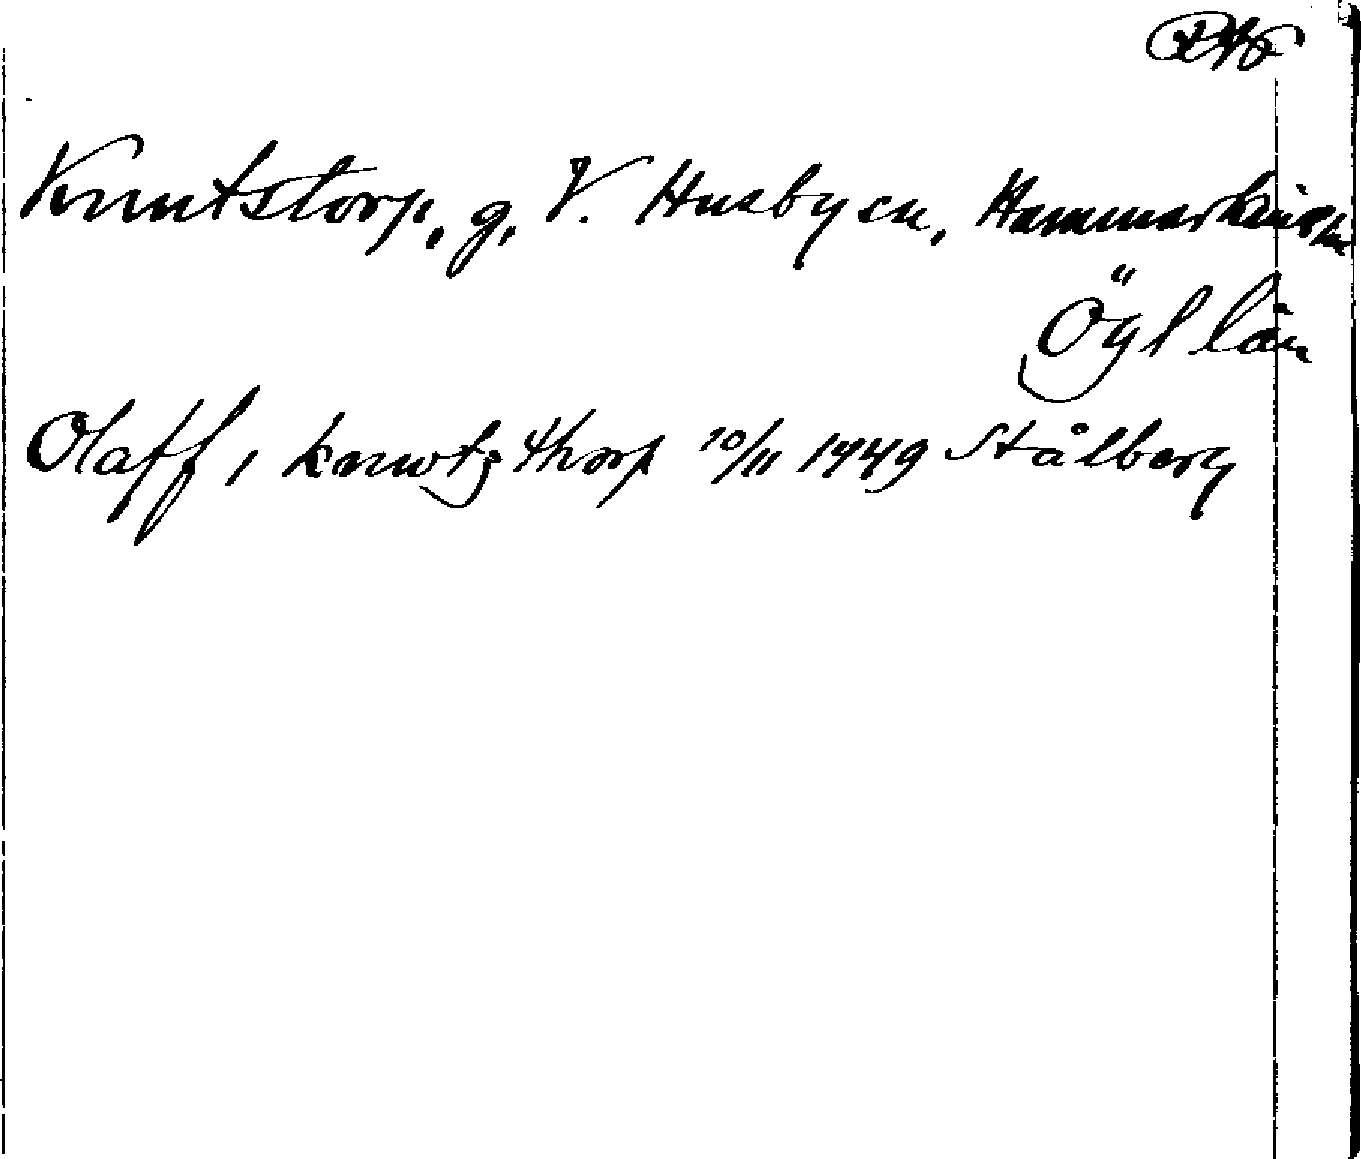 Knutstorp, g, V. Husby sn, Hammarkinds hd
Ögl län
Olaff i knwtzthorp 10/11 1449 Stålberg